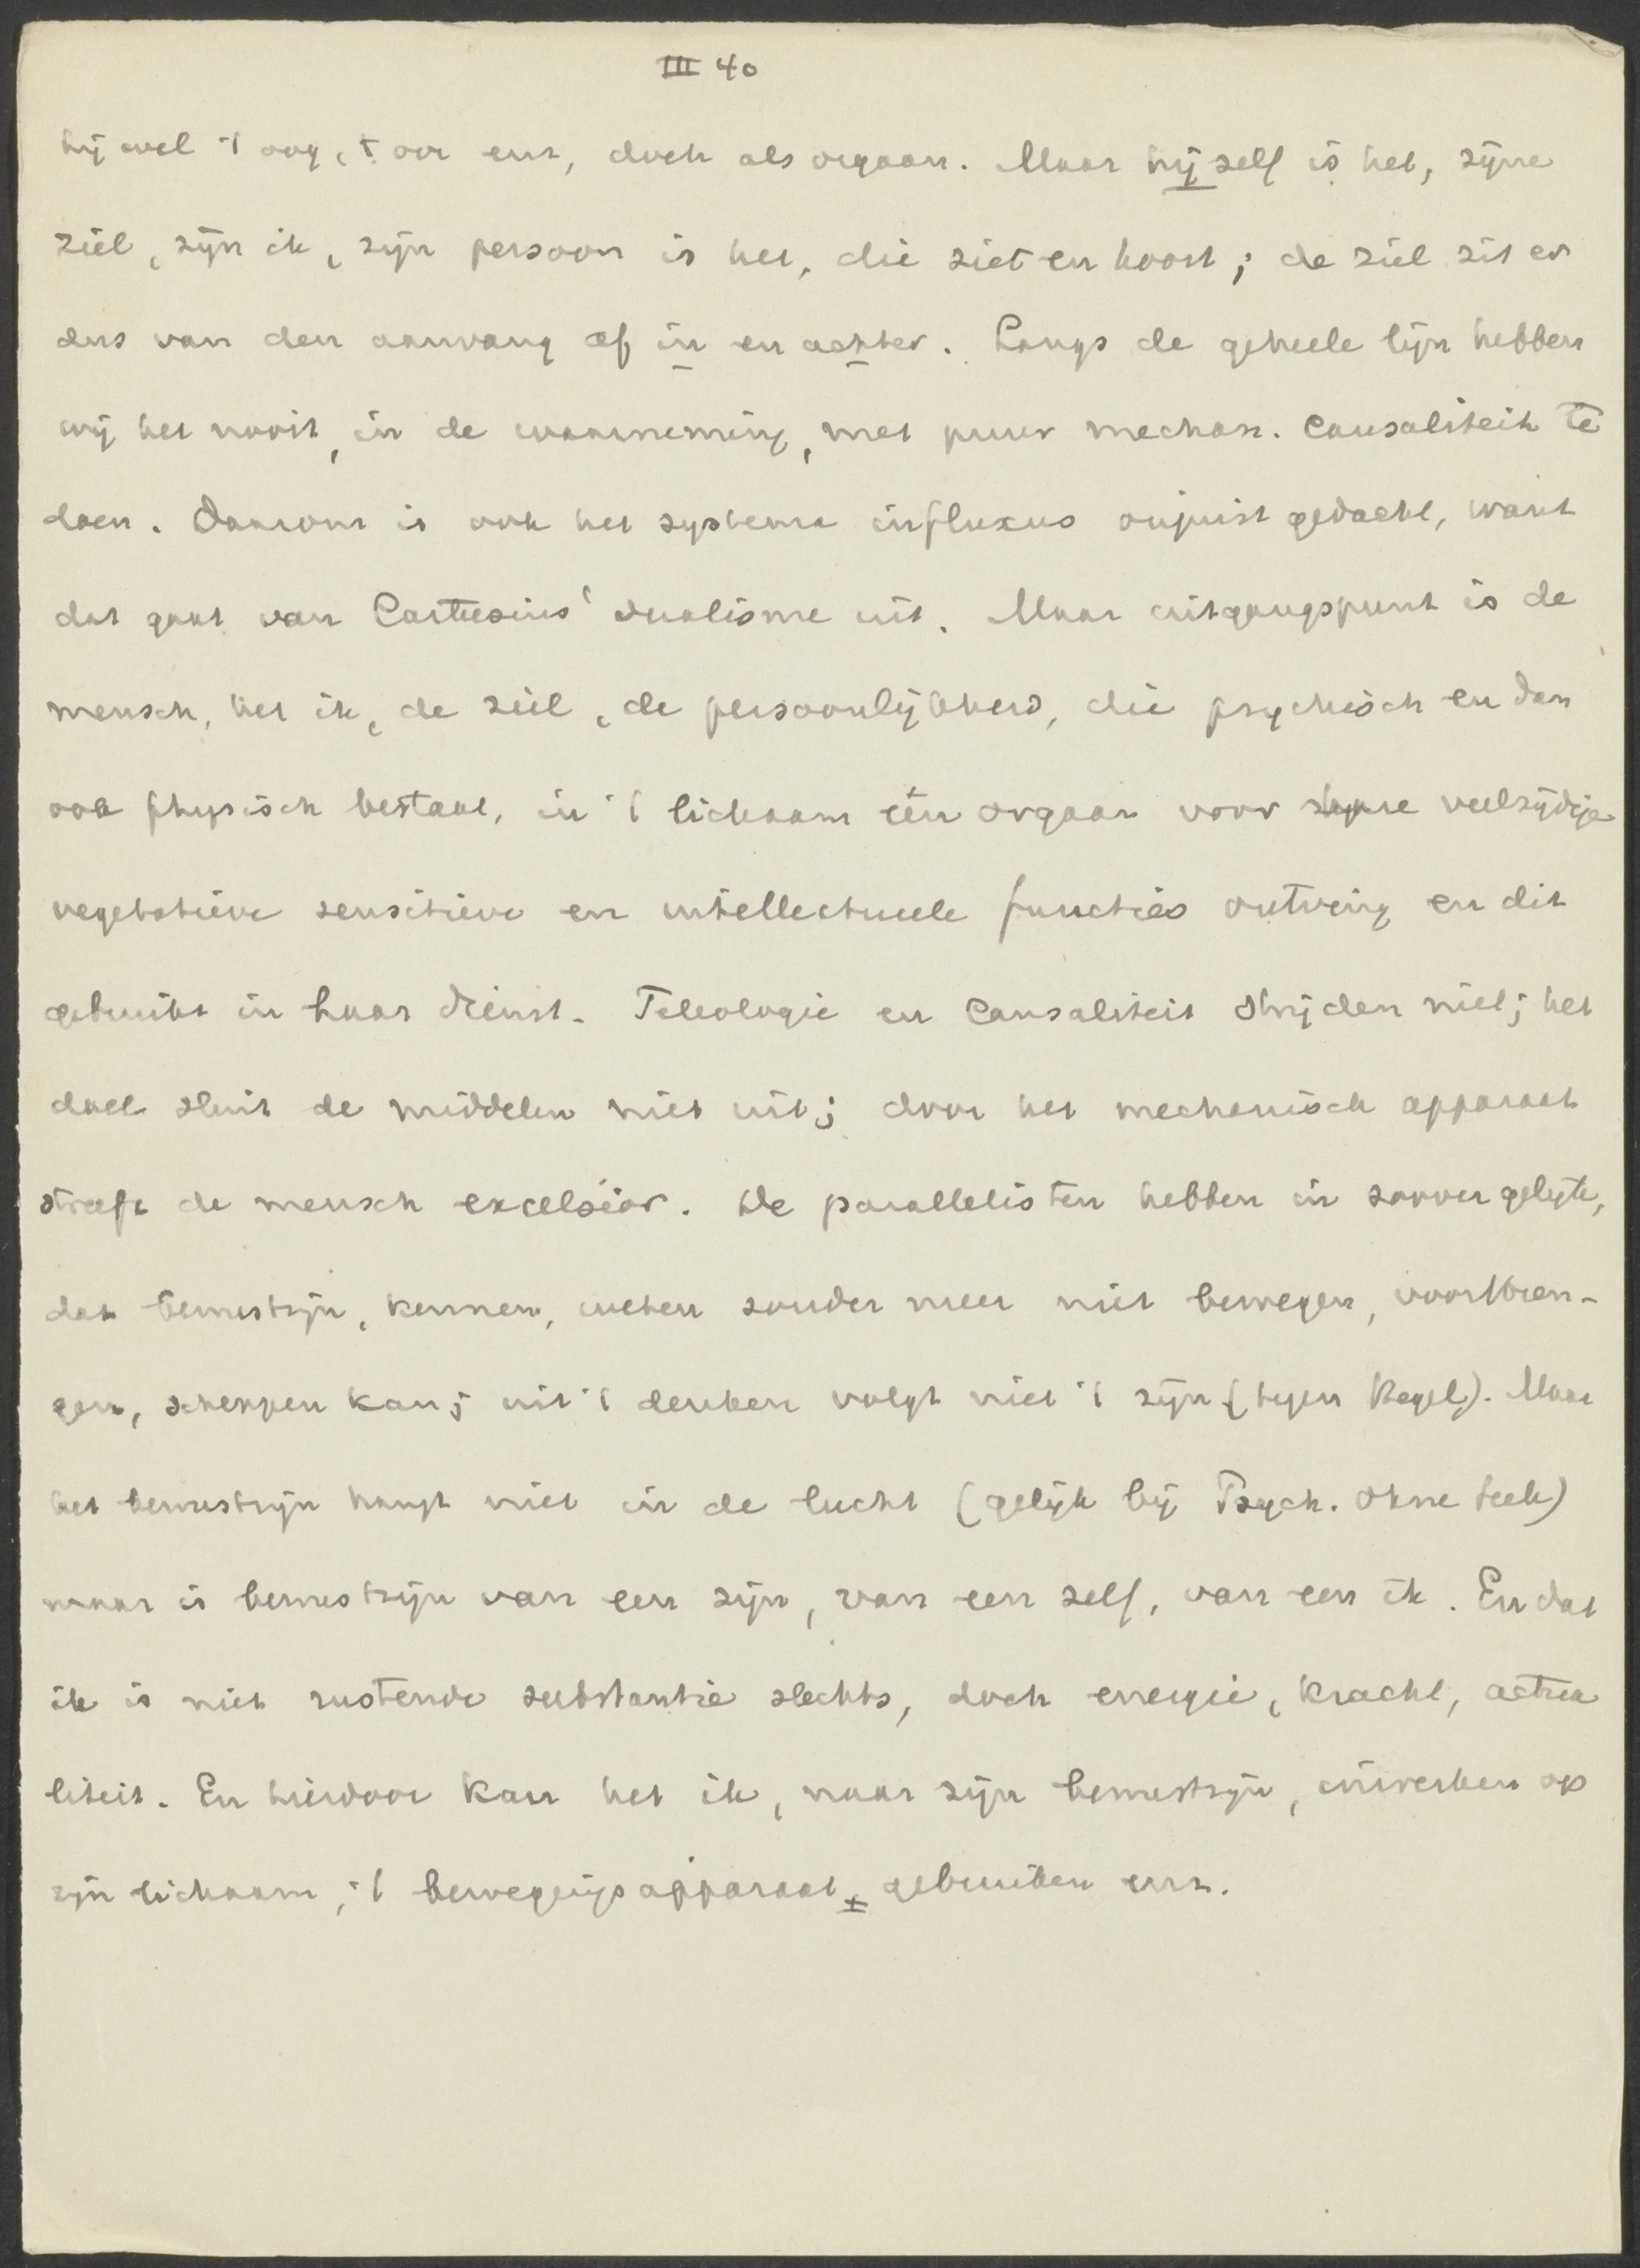 III 40
hij wel 't oog, 't oor enz, doch als orgaan. Maar hij zelf is het, zijne
ziel, zijn ik, zijn persoon is het, die ziet en hoort; de ziel zit er
dus van den aanvang af in en achter. Langs de geheele lijn hebben
wij het nooit, in de waarneming, met puur mechan. causaliteit te
doen. Daarom is ook het systema influxus onjuist gedacht, want
dat gaat van Cartesius' dualisme uit. Maar uitgangspunt is de
mensch, het ik, de ziel, de persoonlijkheid, die psychisch en dan
ook physisch bestaat, in 't lichaam één orgaan voor zijne veelzijdige
vegetatieve sensitieve en intellectueele functies ontving en dit
gebruikt in haar dienst. Teleologie en causaliteit strijden niet; het
doel sluit de middelen niet uit; door het mechanisch apparaat
streeft de mensch excelsior. De parallelisten hebben in zoover gelijk,
dat bewustzijn, kennen, weten zonder meer niet bewegen, voortbren-
gen, scheppen kan; uit 't denken volgt niet 't zijn (tegen Hegel). Maar
het bewustzijn hangt niet in de lucht (gelijk bij Psych. ohne Seele)
maar is bewustzijn van een zijn, van een zelf, van een ik. En dat
ik is niet rustende substantie slechts, doch energie, kracht, actua
liteit. En hierdoor kan het ik, naar zijn bewustzijn, inwerken op
zijn lichaam, 't bewegingsapparaat ± gebruiken enz.